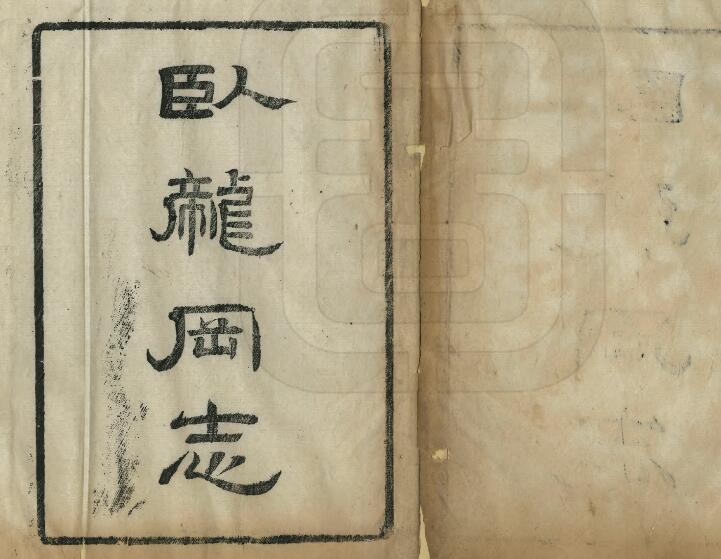 臥龍岡志